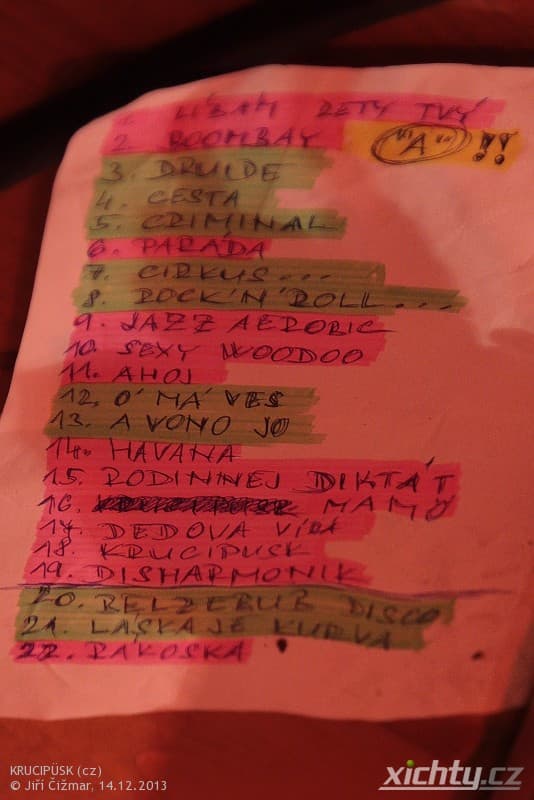 1. LÍBÁM RETY TVÝ
2. BOOMBAY "A" !!
3. DRUIDE
4. CESTA
5. CRIMINAL
6. PARÁDA
7. CIRKUS...
8. ROCK'N'ROLL...
9. JAZZ AEROBIC
10. SEXY WOODOO
11. AHOJ
12. O'MÁ VES
13. A VONO JO
14. HAVANA
15. RODINNEJ DIKTÁT
16. MAMO
17. DEDOVA VÍRA
18. KRUCIPUSK
19. DISHARMONIK
20. BELZEBUB DISCO
21. LÁSKA JE KURVA
22. RÁKOSKA
KRUCIPÜSK (cz)
© Jiří Čižmar, 14.12.2013
xichty.cz